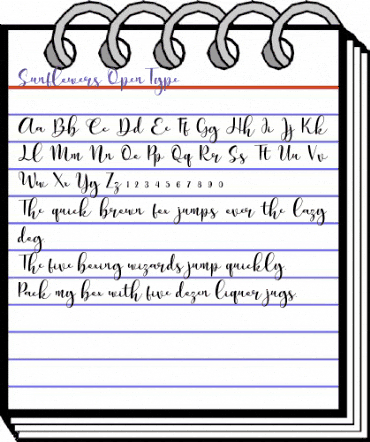 Sunflowers Open Type
Aa Bb Cc Dd Ee Ff Gg Hh Ii Jj Kk
Ll Mm Nn Oo Pp Qq Rr Ss Tt Uu Vv
Ww Xx Yy Zz 1 2 3 4 5 6 7 8 9 0
The quick brown fox jumps over the lazy
dog
The five boxing wizards jump quickly.
Pack my box with five dozen liquor jugs.